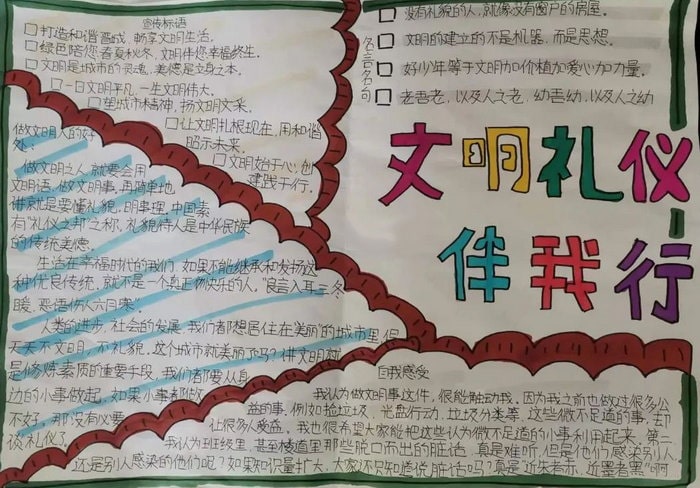 宣传标语
打造和谐晋城,畅享文明生活。
绿色陪您春夏秋冬,文明伴您幸福终生。
文明是城市的灵魂,美德是立身之本。
一日文明平凡,一生文明伟大。
塑城市精神,扬文明文采。
让文明扎根现在,用和谐
昭示未来。
文明始于心,创
建践于行。
名言名句
没有礼貌的人,就像没有窗户的房屋。
文明的建立的不是机器,而是思想。
好少年等于文明加价植加爱心加力量。
老吾老,以及人之老,幼吾幼,以及人之幼
文明礼仪
伴我行
做文明人的好
处:
做文明之人,就要会用
文明语,做文明事,再简单地
讲就是要懂礼貌,明事理,中国素
有“礼仪之邦”之称,礼貌待人是中华民族
的传统美德。
生活在幸福时代的我们,如果不能继承和发扬这
种优良传统,就不是一个真正快乐的人,“良言入耳三冬
暖,恶语伤人六月寒”。
人类的进步,社会的发展,我们都想居住在美丽的城市里,但
天天不文明,不礼貌,这个城市就美丽了吗?讲文明就
是修炼素质的重要手段,我们都要从身
边的小事做起,如果小事都做
不好,那没有必要
谈礼仪了。
自我感受
我认为做文明事这件,很能触动我,因为我之前也做过很多公
益的事,例如捡垃圾,光盘行动,垃圾分类等,这些微不足道的事,却
让很多人受益,我也很希望大家能把这些认为微不足道的小事利用起来,第二
我认为班级里,甚至楼道里那些脱口而出的脏话,真是难听,但是他们感染别人
还是别人感染的他们呢?如果知识量扩大,大家还只知道说脏话吗?真是“近朱者赤,近墨者黑”啊